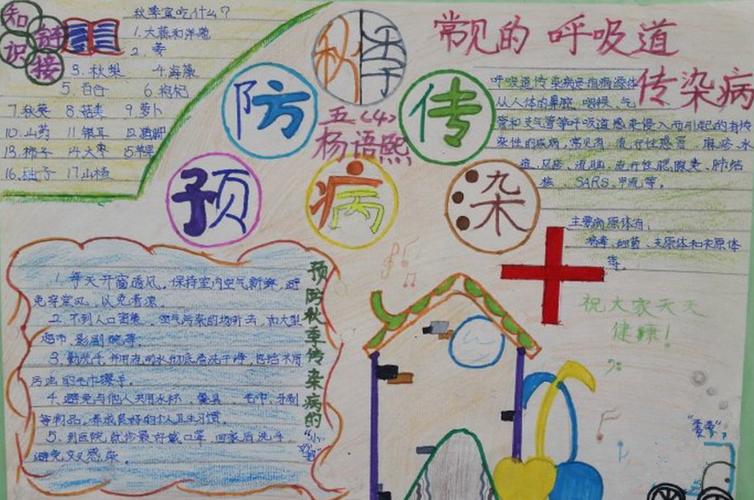 知识
链接
秋季宜吃什么?
1.大蒜和洋葱
2.枣
3.秋梨 4.海藻
5.百合 6.枸杞
7.秋葵 8.菇类 9.萝卜
10.山药 11.银耳
13.柿子 14.大枣 15.苹果
16.柚子 17.山楂
秋季
预防
传染
病
五〈4〉
杨语熙
常见的呼吸道
传染病
呼吸道传染病是指病源体
从人体的鼻腔、咽喉、气
管和支气管等呼吸道感染侵入而引起的有传
染性的疾病,常见有:流行性感冒、麻疹、水
痘、风疹、流脑、流行性腮腺炎、肺结
核、SARS、甲流等。
主要病原体有:
病毒、细菌、支原体和衣原体
等。
祝大家天天
健康!
预防秋季传染病的
1.每天开窗通风,保持室内空气新鲜,避
免穿堂风,以免着凉。
2.不到人口密集、空气污染的场所去,如大型
超市,影剧院等。
3.勤洗手,并用流动水彻底清洗干净,包括不用
污浊的毛巾擦手。
4.避免与他人共用水杯、餐具、毛巾、牙刷
等物品,养成良好的个人卫生习惯。
5.到医院就诊最好戴口罩,回家后洗手,
避免交叉感染。